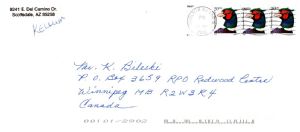 9241 E. Del Camino Dr.
Scottsdale, AZ 85258
KELLUM
Mr. K. Bileski
P.O. Box 3659 RPO Redwood Centre
Winnipeg MB R2W3R4
Canada